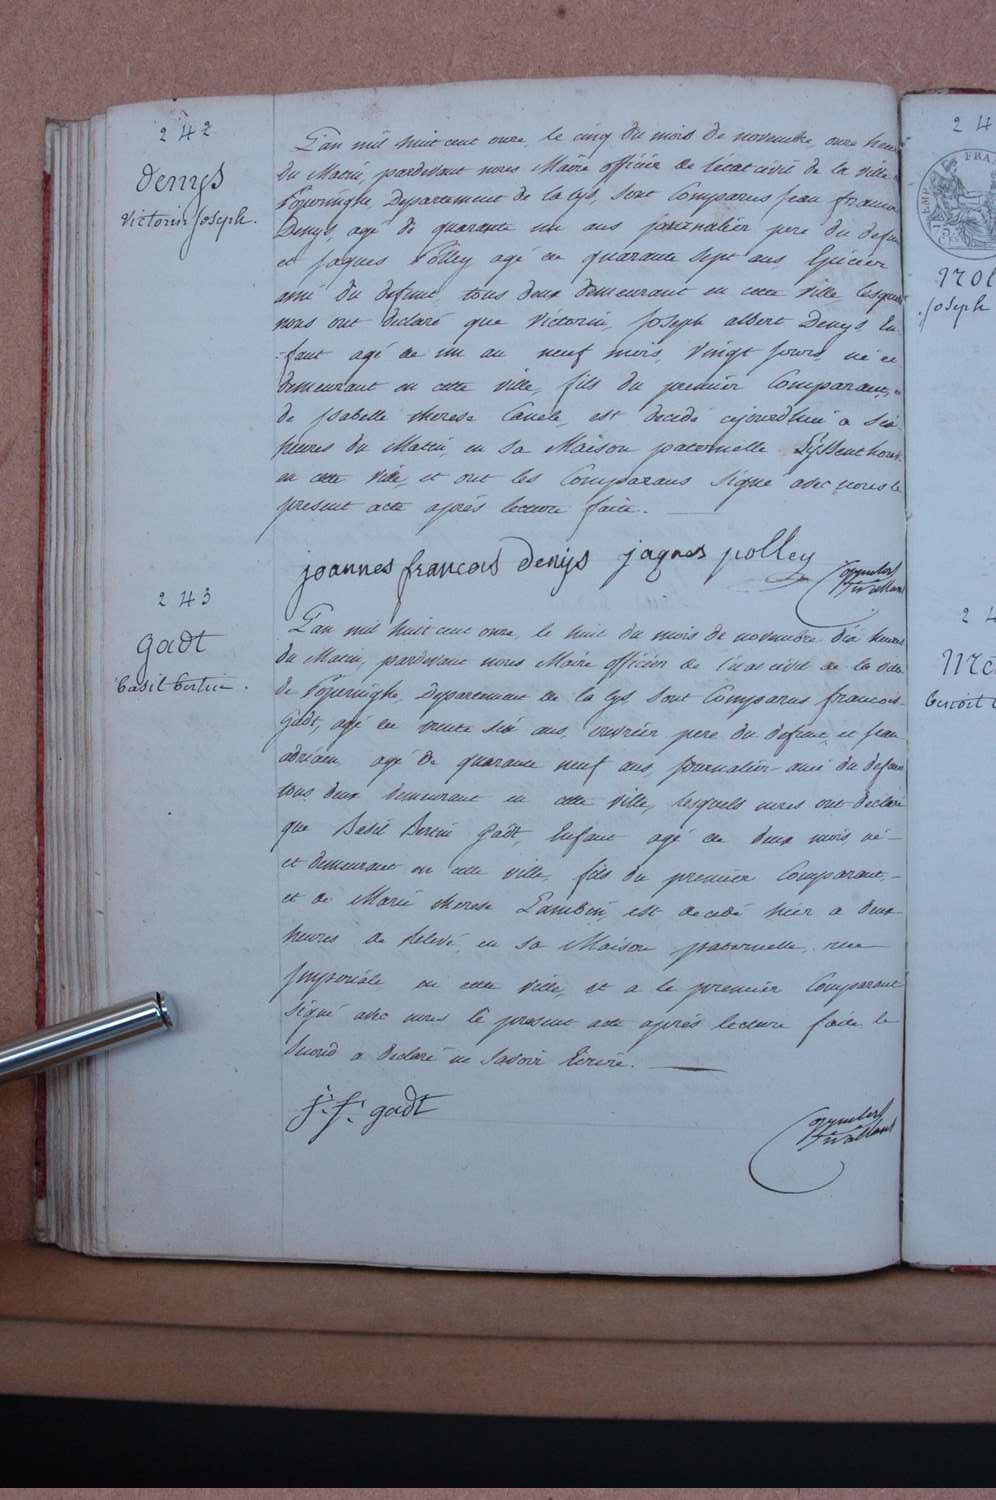 242
Denys
Victorin Joseph.
L'an mil huit cent onze, le cinq du mois de novembre onze heures
du Matin, pardevant nous Maire officier de l'etat civil de la ville
Poperinghe, Departement de la Lys, sont Comparus Jean francois
Denys, agé de quarante un ans journalier pere du defunt
et Jaques Polley agé de quarante sept ans Epicier
ami du defunt, tous deux demeurant en cette ville, lesquels
nous ont declaré que Victorin, Joseph albert Denys En-
-fant agé de un an neuf mois, vingt jours, né et
demeurant en cette ville, fils du premier Comparant, et
de Isabelle therese est decedé cejourdhui a six
heures du Matin, en sa Maison paternelle
en cette ville, et ont les Comparans signé avec nous le
present acte après lecture faite.
joannes francois Denijs jaques polley
243
Gadt
Basil bertin.
L'an mil huit cent onze, le huit du mois de novembre dix heures
du Matin, pardevant nous Maire officier de l'etat civil de la ville
de Poperinghe, Departement de la Lys, sont Comparus francois
Gadt, agé de trente six ans, ouvrier pere du defunt, et Jean
adriaen, agé de quarante neuf ans, Journalier ami du defunt
tous deux demeurant en cette ville, lesquels nous ont declaré
que Basil Bertin Gadt, Enfant agé de deux mois, né
et demeurant en cette ville, fils du premier Comparant,
et de Marie therese Lambin, est decedé hier a deux
heures de relevé, en sa Maison paternelle, rue
Imperiale en cette ville, et a le premier Comparant
signé avec nous le present acte après lecture faite le
second a declaré ne savoir Ecrire.
j. f. gadt
24
EMP FRA
Joseph
24
benoit